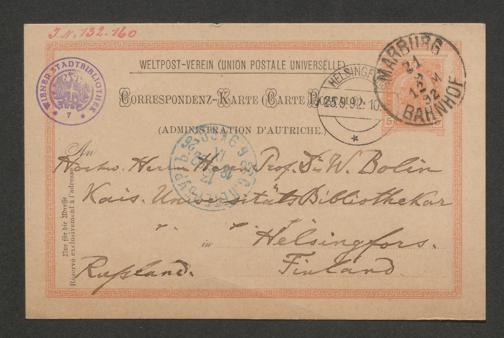 I.N. 132.160
WIENER STADTBIBLIOTHEK
7
WELTPOST-VEREIN (UNION POSTALE UNIVERSELLE)
MARBURG
21
9
12 M
92
BAHNHOF
HELSINGF
25 9 92 10
CORRESPONDENZ-KARTE (CARTE
(ADMINISTRATION D'AUTRICHE)
An
Hochw. Herrn Herrn Prof. Dr. W. Bolin
Kais. Universitäts Bibliothekar
in Helsingfors.
Rußland. Finland.
Nur für die Adresse
Réservé exclusivement à l'adresse